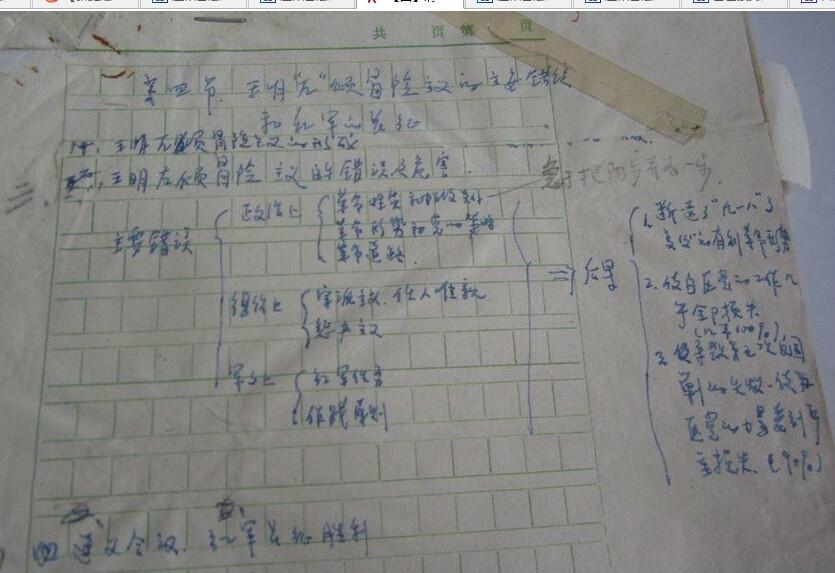 共 页 第 页
第四节. 王明"左"倾冒险主义的主要错误
和红军的长征
一. 王明左倾冒险主义的形成
二. 王明左倾冒险主义的错误及危害
三.
主要错误
政治上
革命性质和
革命形势和党的策略
革命道路.
组织上
宗派主义. 任人唯亲
惩办主义
军事上
红军任务
作战原则
⇒ 后果
1. 断送了"九一八"事
变后的有利革命形势
2. 使白区党的工作几
乎全部损失
(几乎100%)
3. 使导致第五次反围
剿的失败. 使苏
区党的力量受到严
重损失. (90%)
四 遵义会议. 红军长征胜利